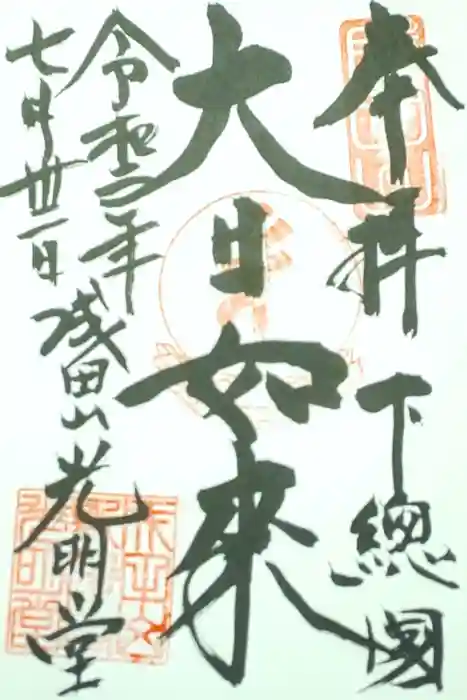 奉拝 下總國
大日如来
令和二年
七月卅一日
成田山光明堂